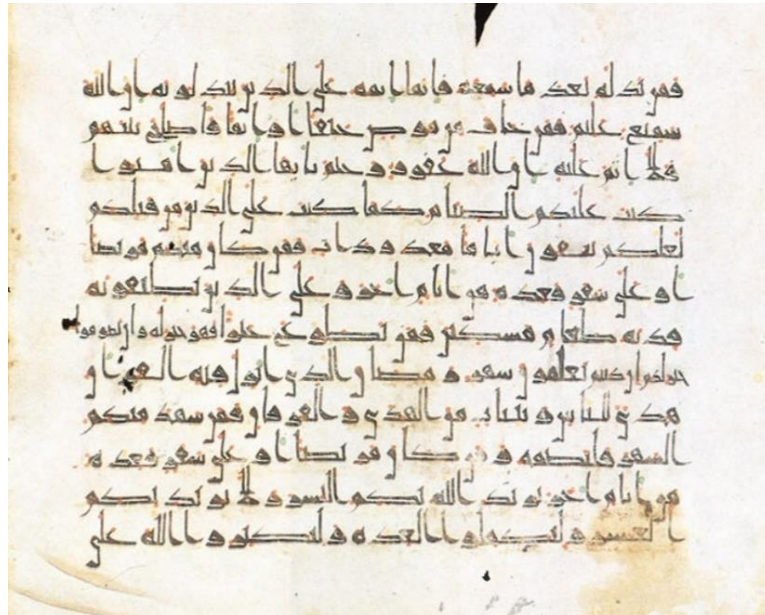 فمن بدله بعد ما سمعه فانما اثمه على الذين يبدلونه ان الله
سميع عليم فمن خاف من موص جنفا او اثما فاصلح بينهم
فلا اثم عليه ان الله غفور رحيم يايها الذين امنوا
كتب عليكم الصيام كما كتب على الذين من قبلكم
لعلكم تتقون اياما معدودات فمن كان منكم مريضا
او على سفر فعدة من ايام اخر وعلى الذين يطيقونه
فدية طعام مسكين فمن تطوع خيرا فهو خير له وان تصوموا
خير لكم ان كنتم تعلمون شهر رمضان الذي انزل فيه القران
هدى للناس وبينات من الهدى والفرقان فمن شهد منكم
الشهر فليصمه ومن كان مريضا او على سفر فعدة
من ايام اخر يريد الله بكم اليسر ولا يريد بكم
العسر ولتكملوا العدة ولتكبروا الله على